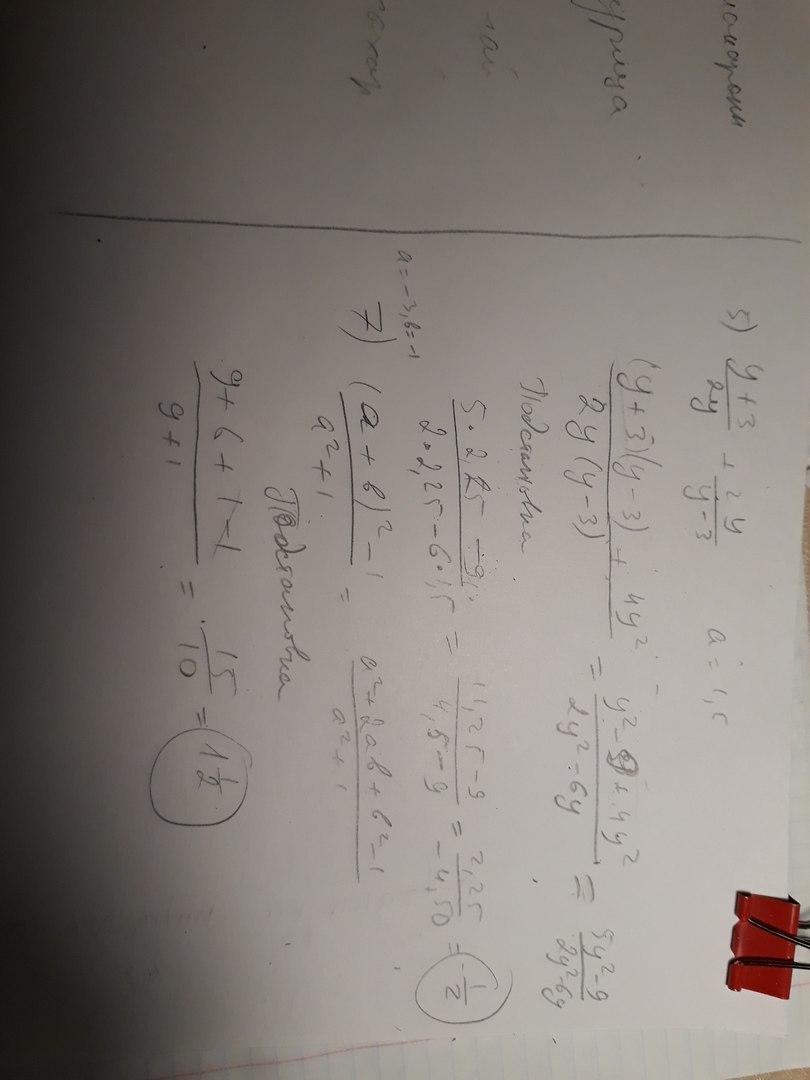 макароны
курица
чай
сахар
5) (y+3)/(2y) + (2y)/(y-3)   a = 1,5
((y+3)(y-3) + 4y²)/(2y(y-3)) = (y²-9+4y²)/(2y²-6y) = (5y²-9)/(2y²-6y)
Подстановка
(5·2,25-9)/(2·2,25-6·1,5) = (11,25-9)/(4,5-9) = 2,25/(-4,50) = -1/2
a=-3, b=-1
7) ((a+b)²-1)/(a²+1) = (a²+2ab+b²-1)/(a²+1)
Подстановка
(9+6+1-1)/(9+1) = 15/10 = 1 1/2